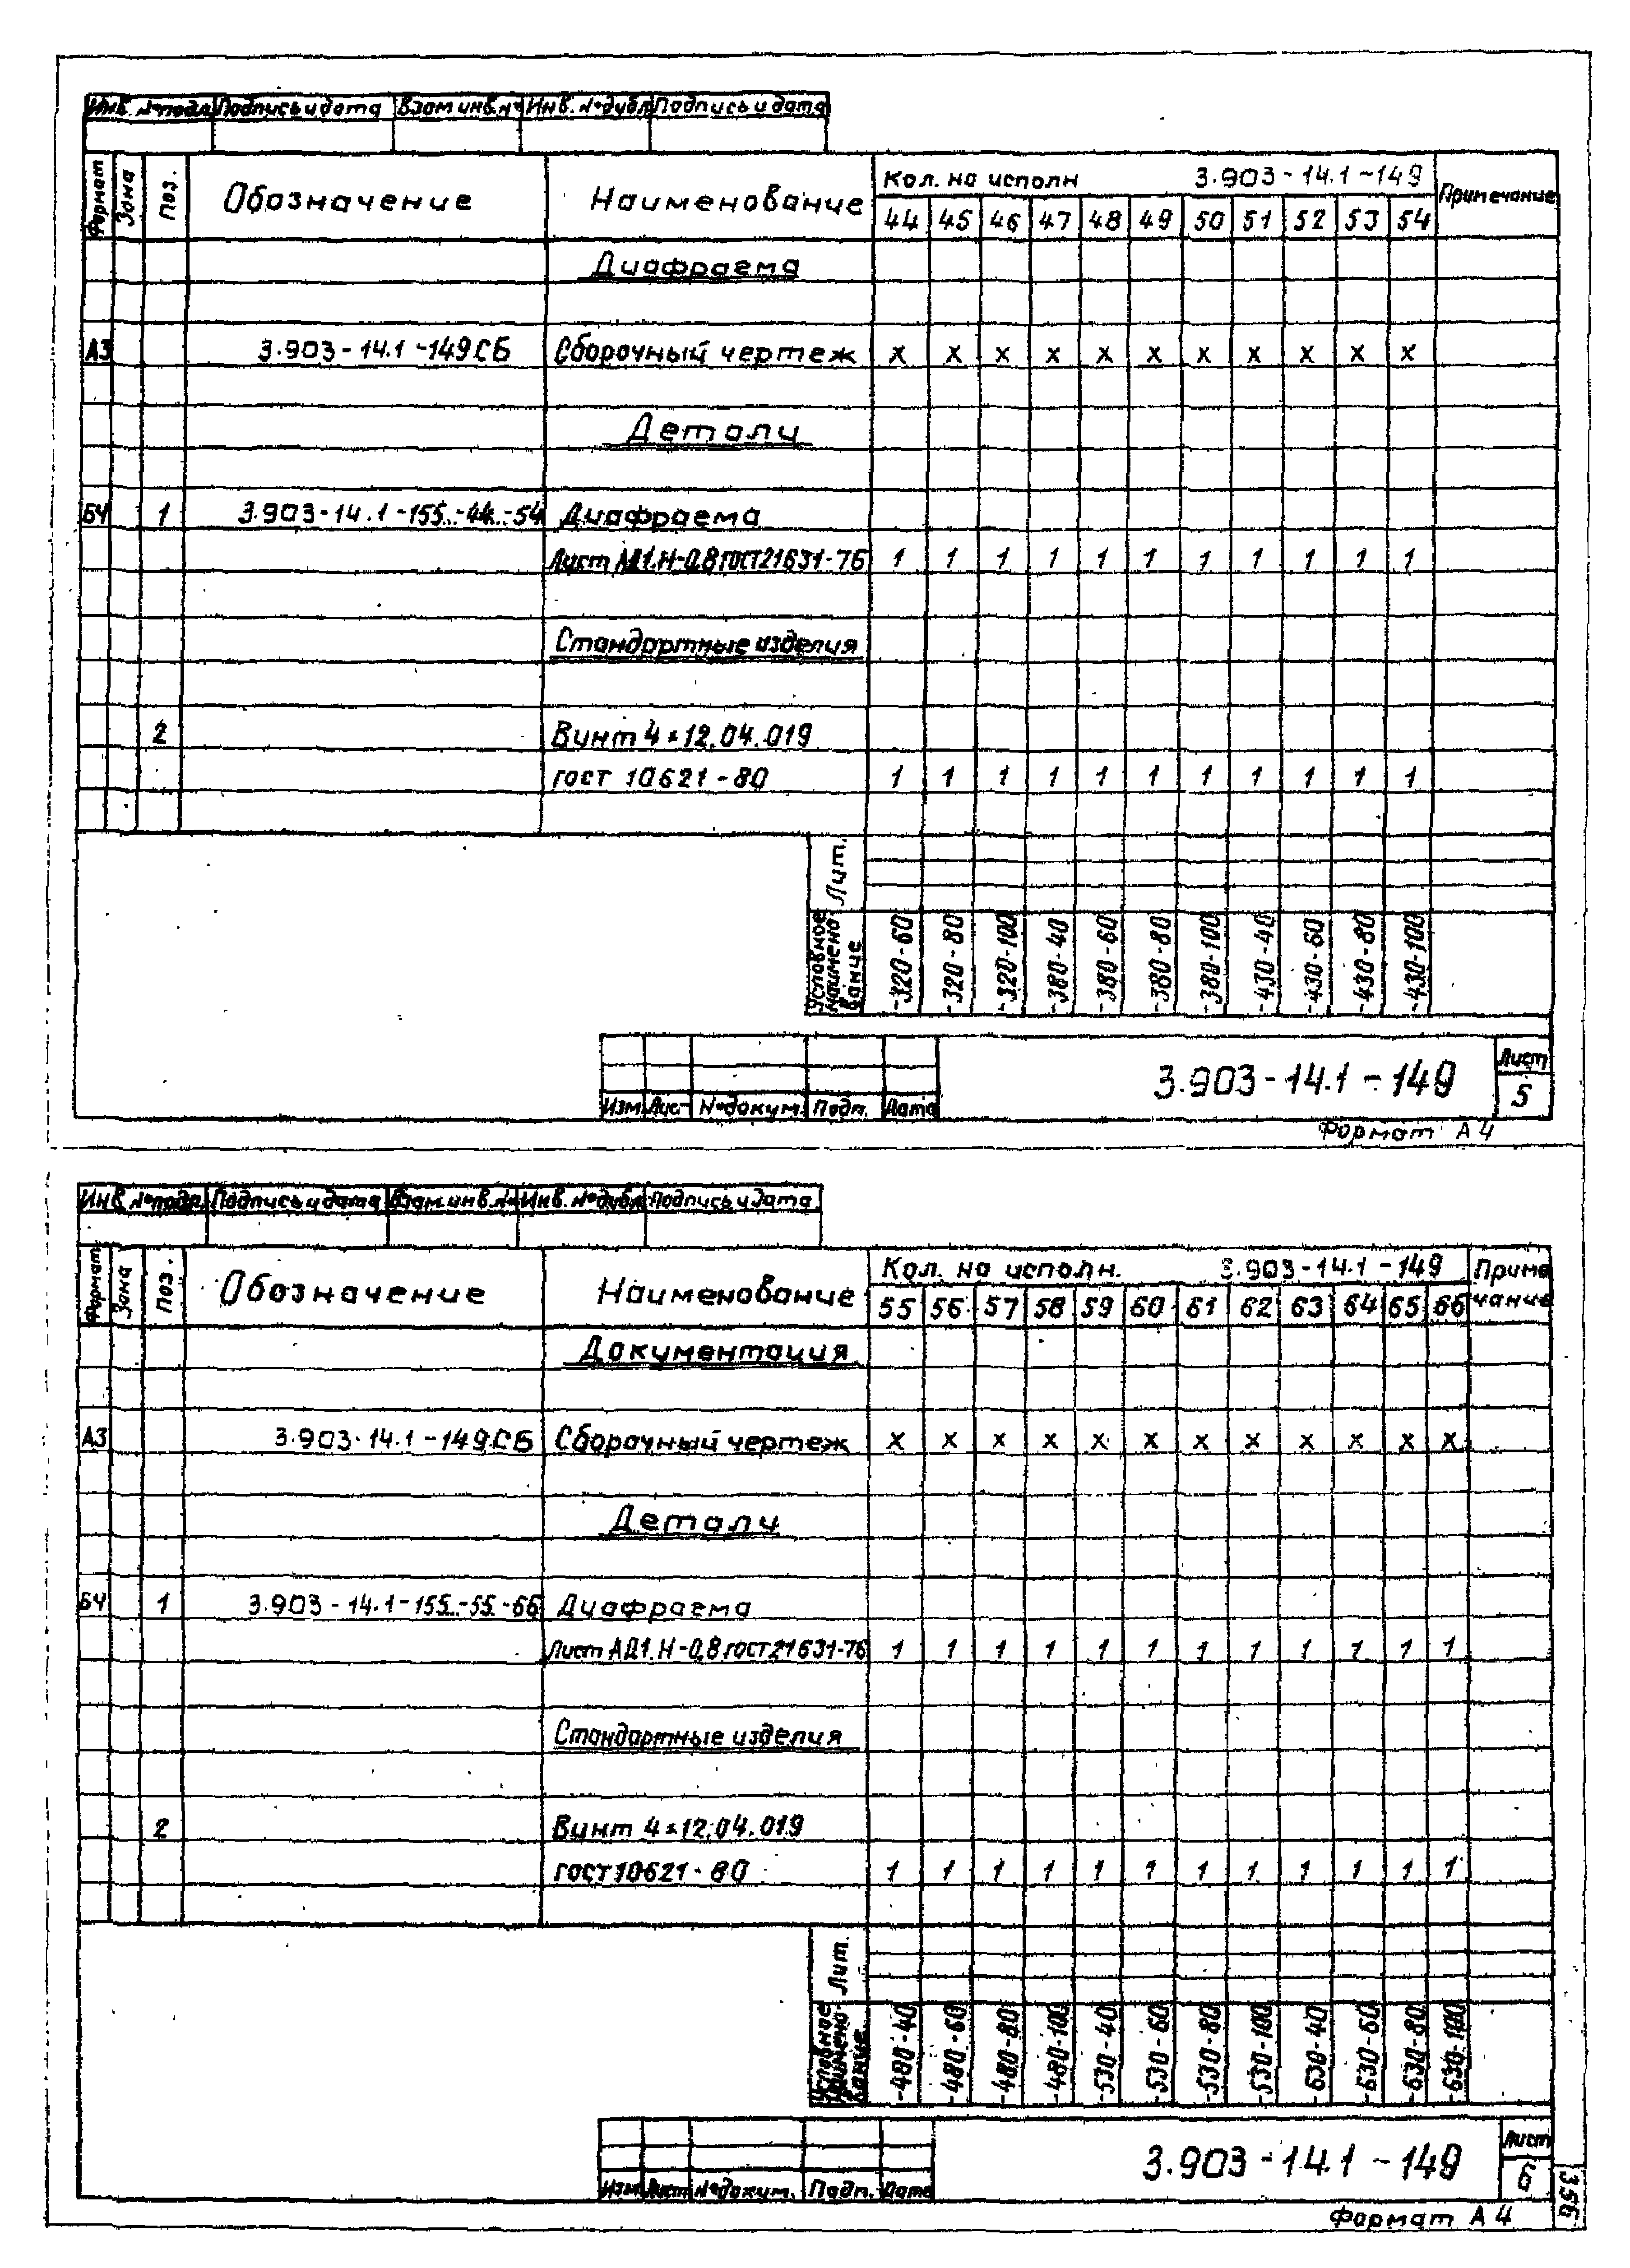 Инв. № подл. Подпись и дата Взам инв. № Инв. № дубл Подпись и дата
Формат Зона Поз. Обозначение Наименование Кол. на исполн 3.903-14.1-149 Примечание
44 45 46 47 48 49 50 51 52 53 54
Диафрагма
А3 3.903-14.1-149СБ Сборочный чертеж х х х х х х х х х х х
Детали
БЧ 1 3.903-14.1-155..-44..-54 Диафрагма
Лист АД1.Н-0,8 ГОСТ21631-76 1 1 1 1 1 1 1 1 1 1 1
Стандартные изделия
2 Винт 4×12.04.019
ГОСТ 10621-80 1 1 1 1 1 1 1 1 1 1 1
Лит.
Условное наименование -320-60 -320-80 -320-100 -380-40 -380-60 -380-80 -380-100 -430-40 -430-60 -430-80 -430-100
3.903-14.1-149 Лист
5
Изм Лист № докум. Подп. Дата
Формат А4
Инв. № подл. Подпись и дата Взам. инв. № Инв. № дубл Подпись и дата
Формат Зона Поз. Обозначение Наименование Кол. на исполн. 3.903-14.1-149 Примечание
55 56 57 58 59 60 61 62 63 64 65 66
Документация
А3 3.903-14.1-149СБ Сборочный чертеж х х х х х х х х х х х х
Детали
БЧ 1 3.903-14.1-155..-55..-66 Диафрагма
Лист АД1.Н-0,8 ГОСТ21631-76 1 1 1 1 1 1 1 1 1 1 1 1
Стандартные изделия
2 Винт 4×12.04.019
ГОСТ 10621-80 1 1 1 1 1 1 1 1 1 1 1 1
Лит.
Условное наименование -480-40 -480-60 -480-80 -480-100 -530-40 -530-60 -530-80 -530-100 -630-40 -630-60 -630-80 -630-100
3.903-14.1-149 Лист
6
Изм Лист № докум. Подп. Дата
Формат А4
356